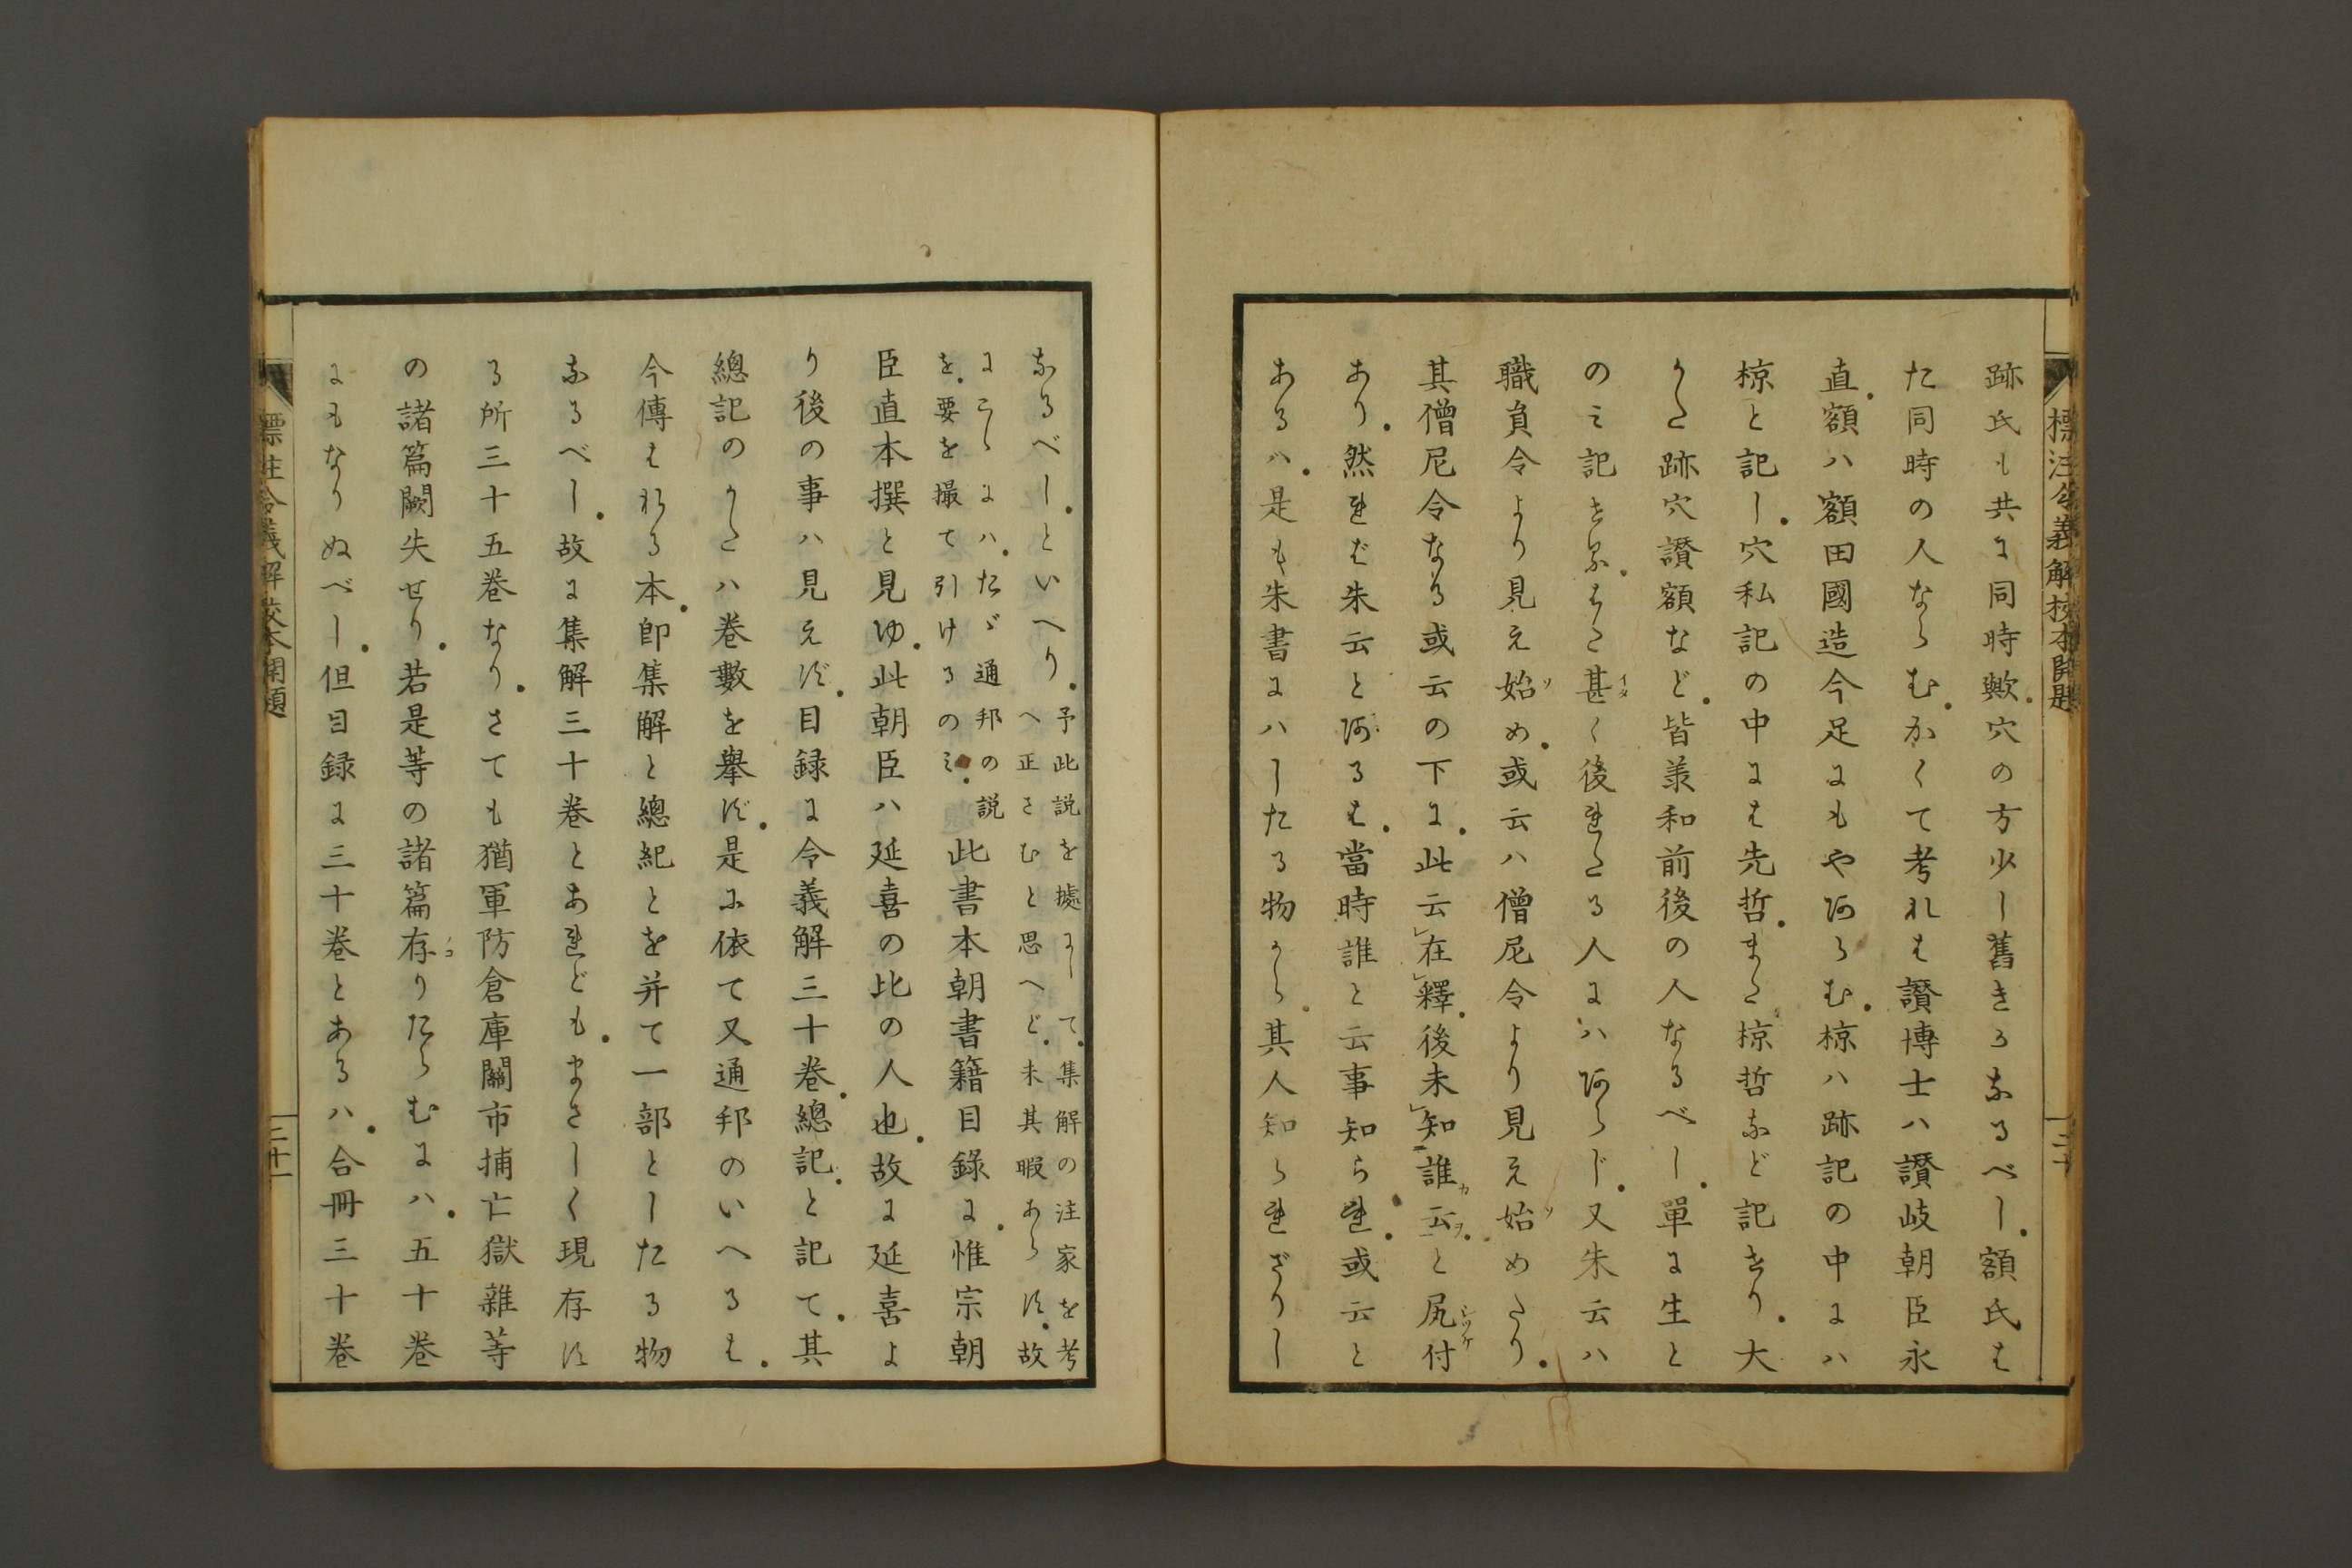 標注令義解校本開題
二十
跡氏も共に同時歟。穴の方少し舊きるなるべし。額氏は
た同時の人ならむ。かくて考れは讃博士ハ讃岐朝臣永
直。額ハ額田國造今足にもや阿らむ。椋ハ跡記の中にハ
椋と記し。穴私記の中には先哲。また椋哲など記せり。大
かた跡穴讃額など。皆羕和前後の人なるべし。單に生と
のミ記せるハ。はた甚く後れたる人にハ阿らじ。又朱云ハ
職員令より見え始め。或云ハ僧尼令より見え始めたり。
其僧尼令なる或云の下に。此云在釋。後未知誰云。と尻付
あり。然れば朱云と阿るは。當時誰と云事知られ。或云と
あるハ。是も朱書にハしたる物から。其人知られざりし
なるべし。といへり。予此説を據にして。集解の注家を考
へ正さむと思へど。未其暇あらず。故
にこゝにハ。たゞ通邦の説
を。要を撮て引けるのミ。此書本朝書籍目錄に。惟宗朝
臣直本撰と見ゆ。此朝臣ハ延喜の比の人也。故に延喜よ
り後の事ハ見えず。目録に令義解三十巻。總記。と記て。其
總記のかたハ巻數を擧ず。是に依て又通邦のいへるは。
今傳はれる本。即集解と總紀とを并て一部としたる物
なるべし。故に集解三十巻とあれども。まさしく現存す
る所三十五巻なり。さても猶軍防倉庫關市捕亡獄雜等
の諸篇闕失せり。若是等の諸篇存りたらむにハ。五十巻
にもなりぬべし。但目録に三十巻とあるハ。合冊三十巻
標注令義解校本開題
二十一